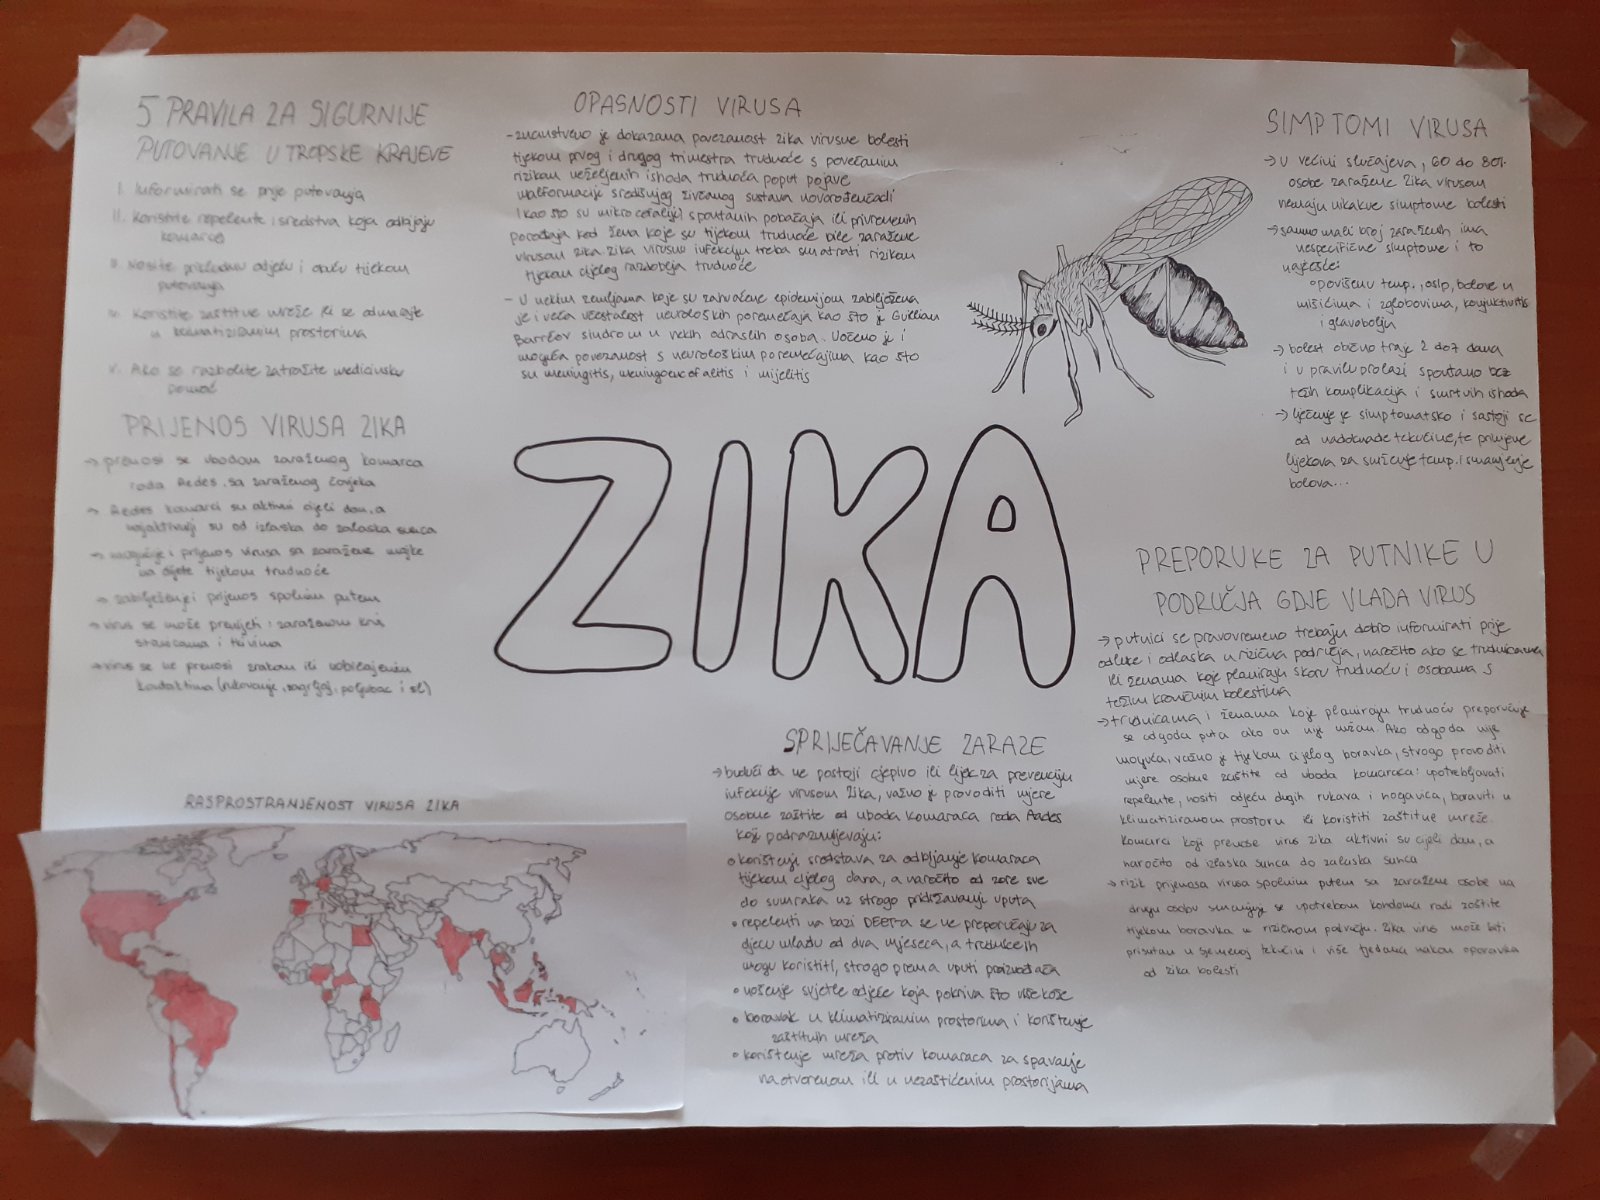 5 PRAVILA ZA SIGURNIJE
PUTOVANJE U TROPSKE KRAJEVE
I. Informirati se prije putovanja
II. Koristite repelente i sredstva koja odbijaju
komarce
III. Nosite prikladnu odjeću i obuću tijekom
putovanja
IV. Koristite zaštitne mreže ili se odmarajte
u klimatiziranim prostorima
V. Ako se razbolite zatražite medicinsku
pomoć
PRIJENOS VIRUSA ZIKA
→ prenosi se ubodom zaraženog komarca
roda Aedes, sa zaraženog čovjeka
→ Aedes komarci su aktivni cijeli dan, a
najaktivniji su od izlaska do zalaska sunca
→ moguć je i prijenos virusa sa zaražene majke
na dijete tijekom trudnoće
→ zabilježen je i prijenos spolnim putem
→ virus se može prenijeti i zaraženom krvi
stanicama i tkivima
→ virus se ne prenosi zrakom ili uobičajenim
kontaktima (rukovanje, zagrljaj, poljubac i sl)
RASPROSTRANJENOST VIRUSA ZIKA
OPASNOSTI VIRUSA
- znanstveno je dokazana povezanost zika virusne bolesti
tijekom prvog i drugog trimestra trudnoće s povećanim
rizikom neželjenih ishoda trudnoća poput pojave
malformacije središnjeg živčanog sustava novorođenčadi
(kao što su mikrocefalije) spontanih pobačaja ili privremenih
porođaja kod žena koje su tijekom trudnoće bile zaražene
virusom zika zika virusnu infekciju treba smatrati rizikom
tijekom cijelog razdoblja trudnoće
- U nekim zemljama koje su zahvaćene epidemijom zabilježena
je i veća učestalost neuroloških poremećaja kao što je Guillian
Barréov sindrom u nekih odraslih osoba. Uočeno je i
moguća povezanost s neurološkim poremećajima kao što
su meningitis, meningoencefalitis i mijelitis
ZIKA
SPRIJEČAVANJE ZARAZE
→ budući da ne postoji cjepivo ili lijek za prevenciju
infekcije virusom Zika, važno je provoditi mjere
osobne zaštite od uboda komaraca roda Aedes
koji podrazumjevaju:
• korištenje sredstava za odbijanje komaraca
tijekom cijelog dana, a naročito od zore sve
do sumraka uz strogo pridržavanje uputa
• repelenti na bazi DEET-a se ne preporučaju za
djecu mlađu od dva mjeseca, a trudnice ih
mogu koristiti, strogo prema uputi proizvođača
• nošenje svjetle odjeće koja pokriva što više kože
• boravak u klimatiziranim prostorima i korištenje
zaštitnih mreža
• korištenje mreža protiv komaraca za spavanje
na otvorenom ili u nezaštićenim prostorijama
SIMPTOMI VIRUSA
→ u većini slučajeva, 60 do 80%
osobe zaražene Zika virusom
nemaju nikakve simptome bolesti
→ samo mali broj zaraženih ima
nespecifične simptome i to
najčešće:
• povišenu temp., osip, bolove u
mišićima i zglobovima, konjuktivitis
i glavobolju
→ bolest obično traje 2 do 7 dana
i u pravilu prolazi spontano bez
težih komplikacija i smrtnih ishoda
→ liječenje je simptomatsko i sastoji se
od nadoknade tekućine, te primjene
lijekova za sniženje temp. i smanjenje
bolova...
PREPORUKE ZA PUTNIKE U
PODRUČJA GDJE VLADA VIRUS
→ putnici se pravovremeno trebaju dobro informirati prije
odluke i odlaska u rizična područja, naročito ako se trudnicama
ili ženama koje planiraju skoru trudnoću i osobama s
težim kroničnim bolestima
→ trudnicama i ženama koje planiraju trudnoću preporučuje
se odgoda puta ako on nije nužan. Ako odgoda nije
moguća, važno je tijekom cijelog boravka, strogo provoditi
mjere osobne zaštite od uboda komaraca: upotrebljavati
repelente, nositi odjeću dugih rukava i nogavica, boraviti u
klimatiziranom prostoru ili koristiti zaštitne mreže.
Komarci koji prenose virus zika aktivni su cijeli dan, a
naročito od izlaska sunca do zalaska sunca
→ rizik prijenosa virusa spolnim putem sa zaražene osobe na
drugu osobu smanjuje se upotrebom kondoma radi zaštite
tijekom boravka u rizičnom području. Zika virus može biti
prisutan u sjemenoj tekućini i više tjedana nakon oporavka
od zika bolesti